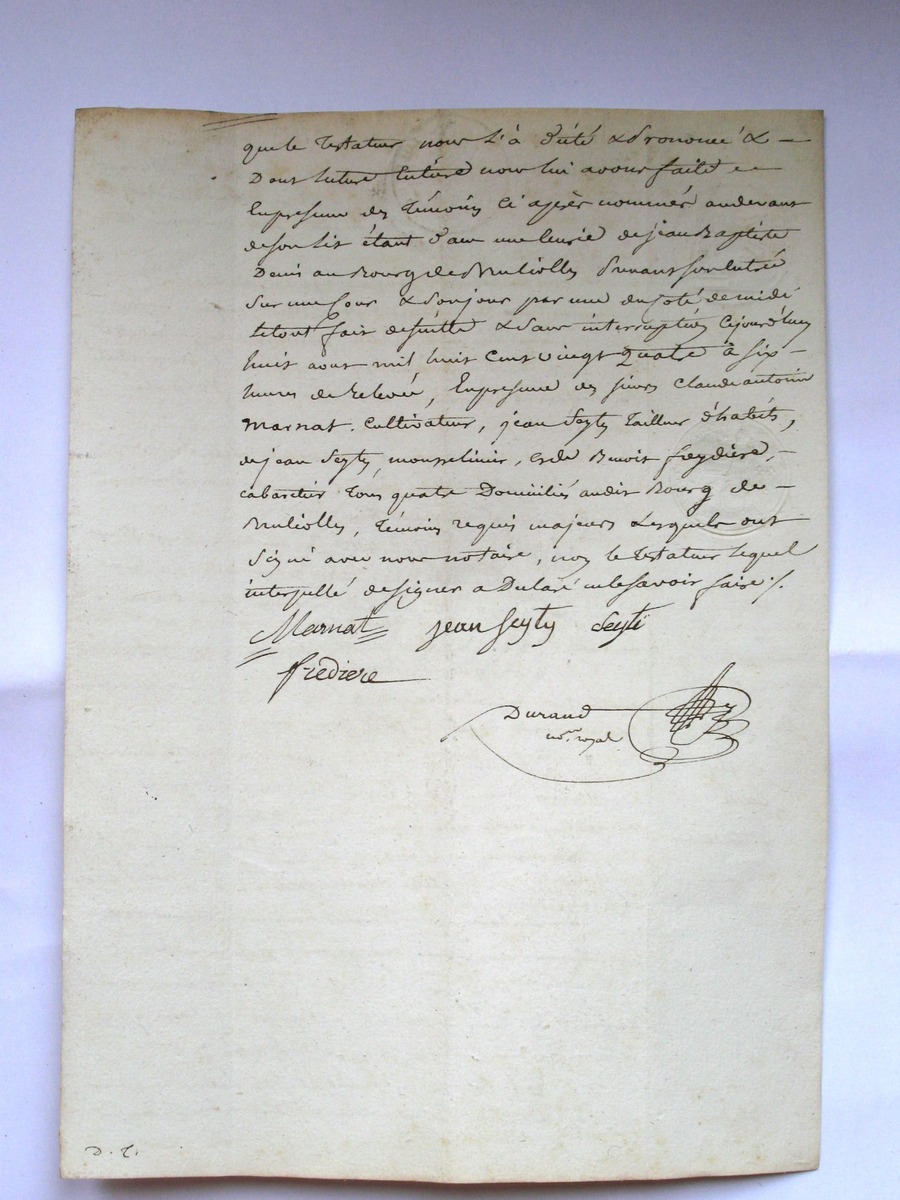 que le Testateur nous l'à dicté & Prononcé &
Dont lecture Entiere nous lui avons faite
En presence des Témoins Ci après nommés au devant
de son lit étant dans une de jean Baptiste
Denis au Bourg de Prenant son Entrée
Sur une Cour & Son jour par une du Coté de midi
Le tout fait de suitte & Sans interruption Cejourd'huy
huit aout mil huit Cent vingt quatre à six
heures de Relevée, En presence des sieurs Claude antoine
Marnat. Cultivateur, jean Seyty Tailleur d'habits,
de jean Seyty, & de Benoit freydiere,
cabaretier Tous quatre Domiciliés audit Bourg de
Témoins requis majeurs Lesquels ont
Signé avec nous notaire, non le Testateur Lequel
interpellé de signer a Declaré ne le Savoir faire ./.
Marnat jean Seyty Seyti
frediere
Durand
no.re royal
D. T.